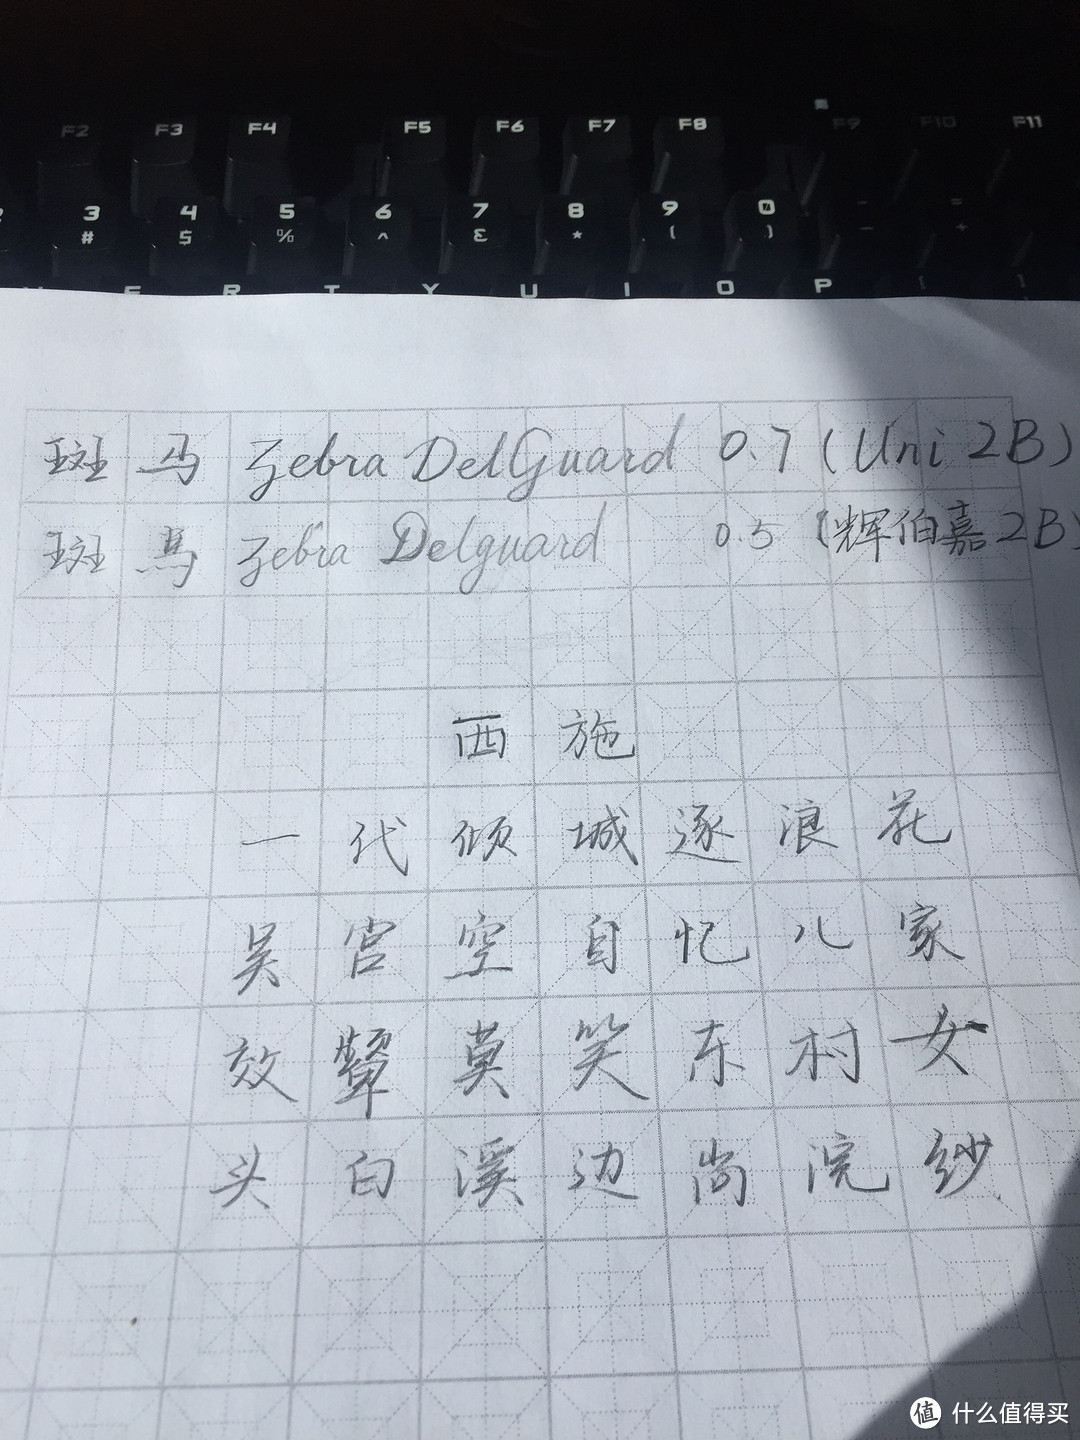 F2 F3 F4 F5 F6 F7 F8 F9 F10 F11
3 4 5 6 7 8 9 0 - =
# $ % ^ & * ( ) _ +
E R T Y U I O P [ ]
斑马 Zebra DelGuard 0.7 (Uni 2B)
斑馬 Zebra Delguard 0.5 (辉伯嘉2B)
西施
一代倾城逐浪花
吴宫空自忆儿家
效颦莫笑东村女
头白溪边尚浣纱
值 什么值得买